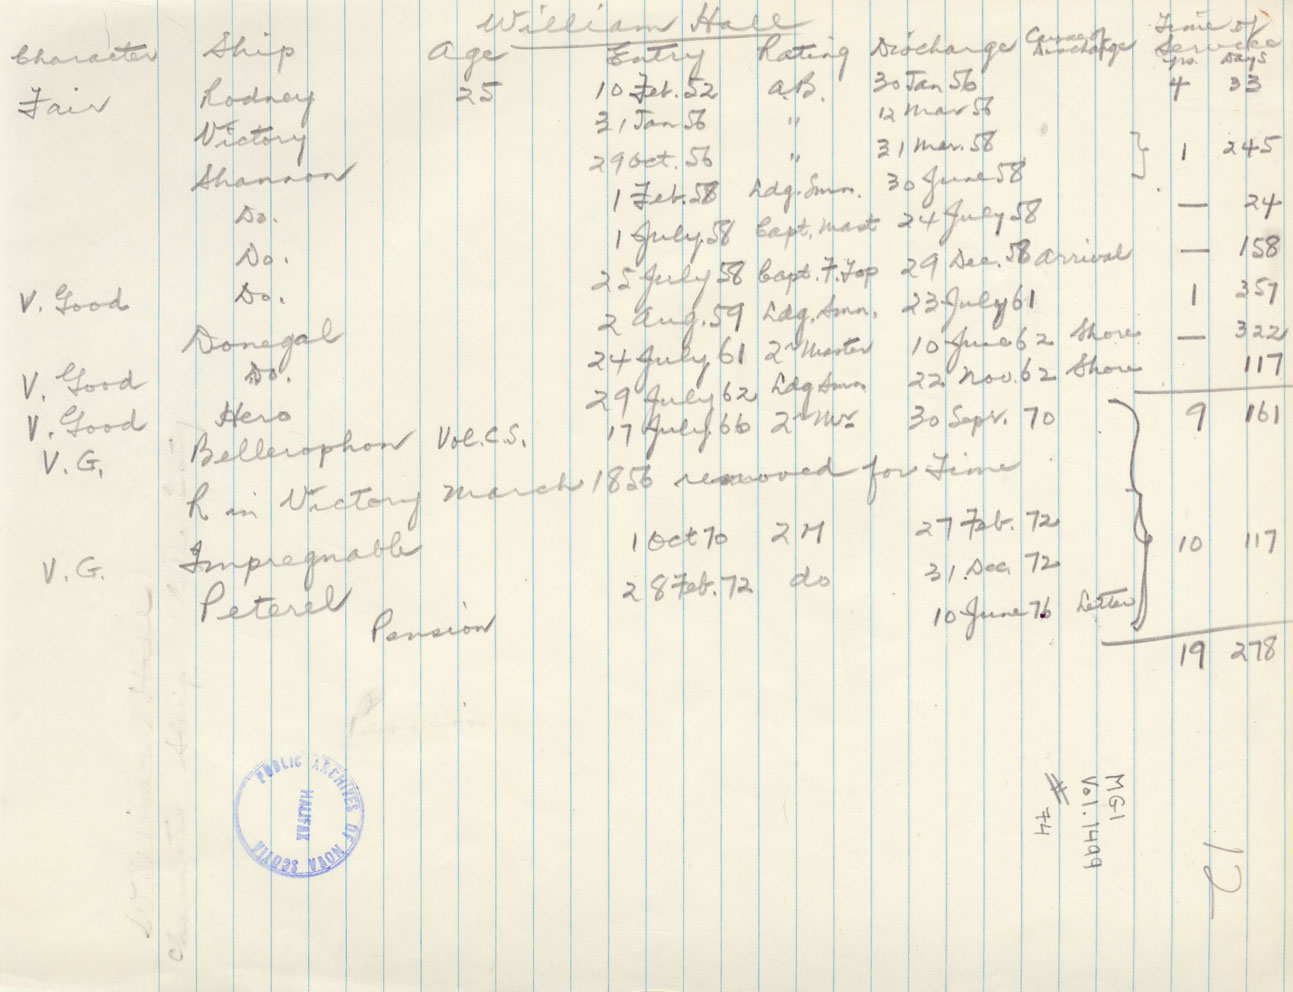 William Hall
Character Ship Age Entry Rating Discharge Cause of Discharge Time of Service yrs. Days
Fair Rodney 25 10 Feb. 52 A.B. 30 Jan 56 4 33
Victory 31 Jan 56 " 12 Mar 56
Shannon 29 Oct. 56 " 31 Mar. 58 } 1 245
Do. 1 Feb. 58 Ldg. Smn. 30 June 58
Do. 1 July 58 Capt. Mast 24 July 58 — 24
V. Good Do. 25 July 58 Capt. F. Top 29 Dec. 58 Arrival — 158
Donegal 2 Aug. 59 Ldg. Smn. 23 July 61 1 357
V. Good Do. 24 July 61 2n Master 10 June 62 Shore — 322
V. Good Hero 29 July 62 Ldg Smn. 22 Nov. 62 Shore 117
V.G. Bellerophon Vol. C.S. 17 July. 66 2n Mr 30 Sept. 70 9 161
R in Victory March 1856 removed for Time
V.G. Impregnable 1 Oct 70 2 M 27 Feb. 72 10 117
Peterel 28 Feb. 72 do 31. Dec. 72
Pension 10 June 76 Letter
19 278
PUBLIC ARCHIVES OF NOVA SCOTIA
HALIFAX
MG1
Vol. 1499
# 74
12